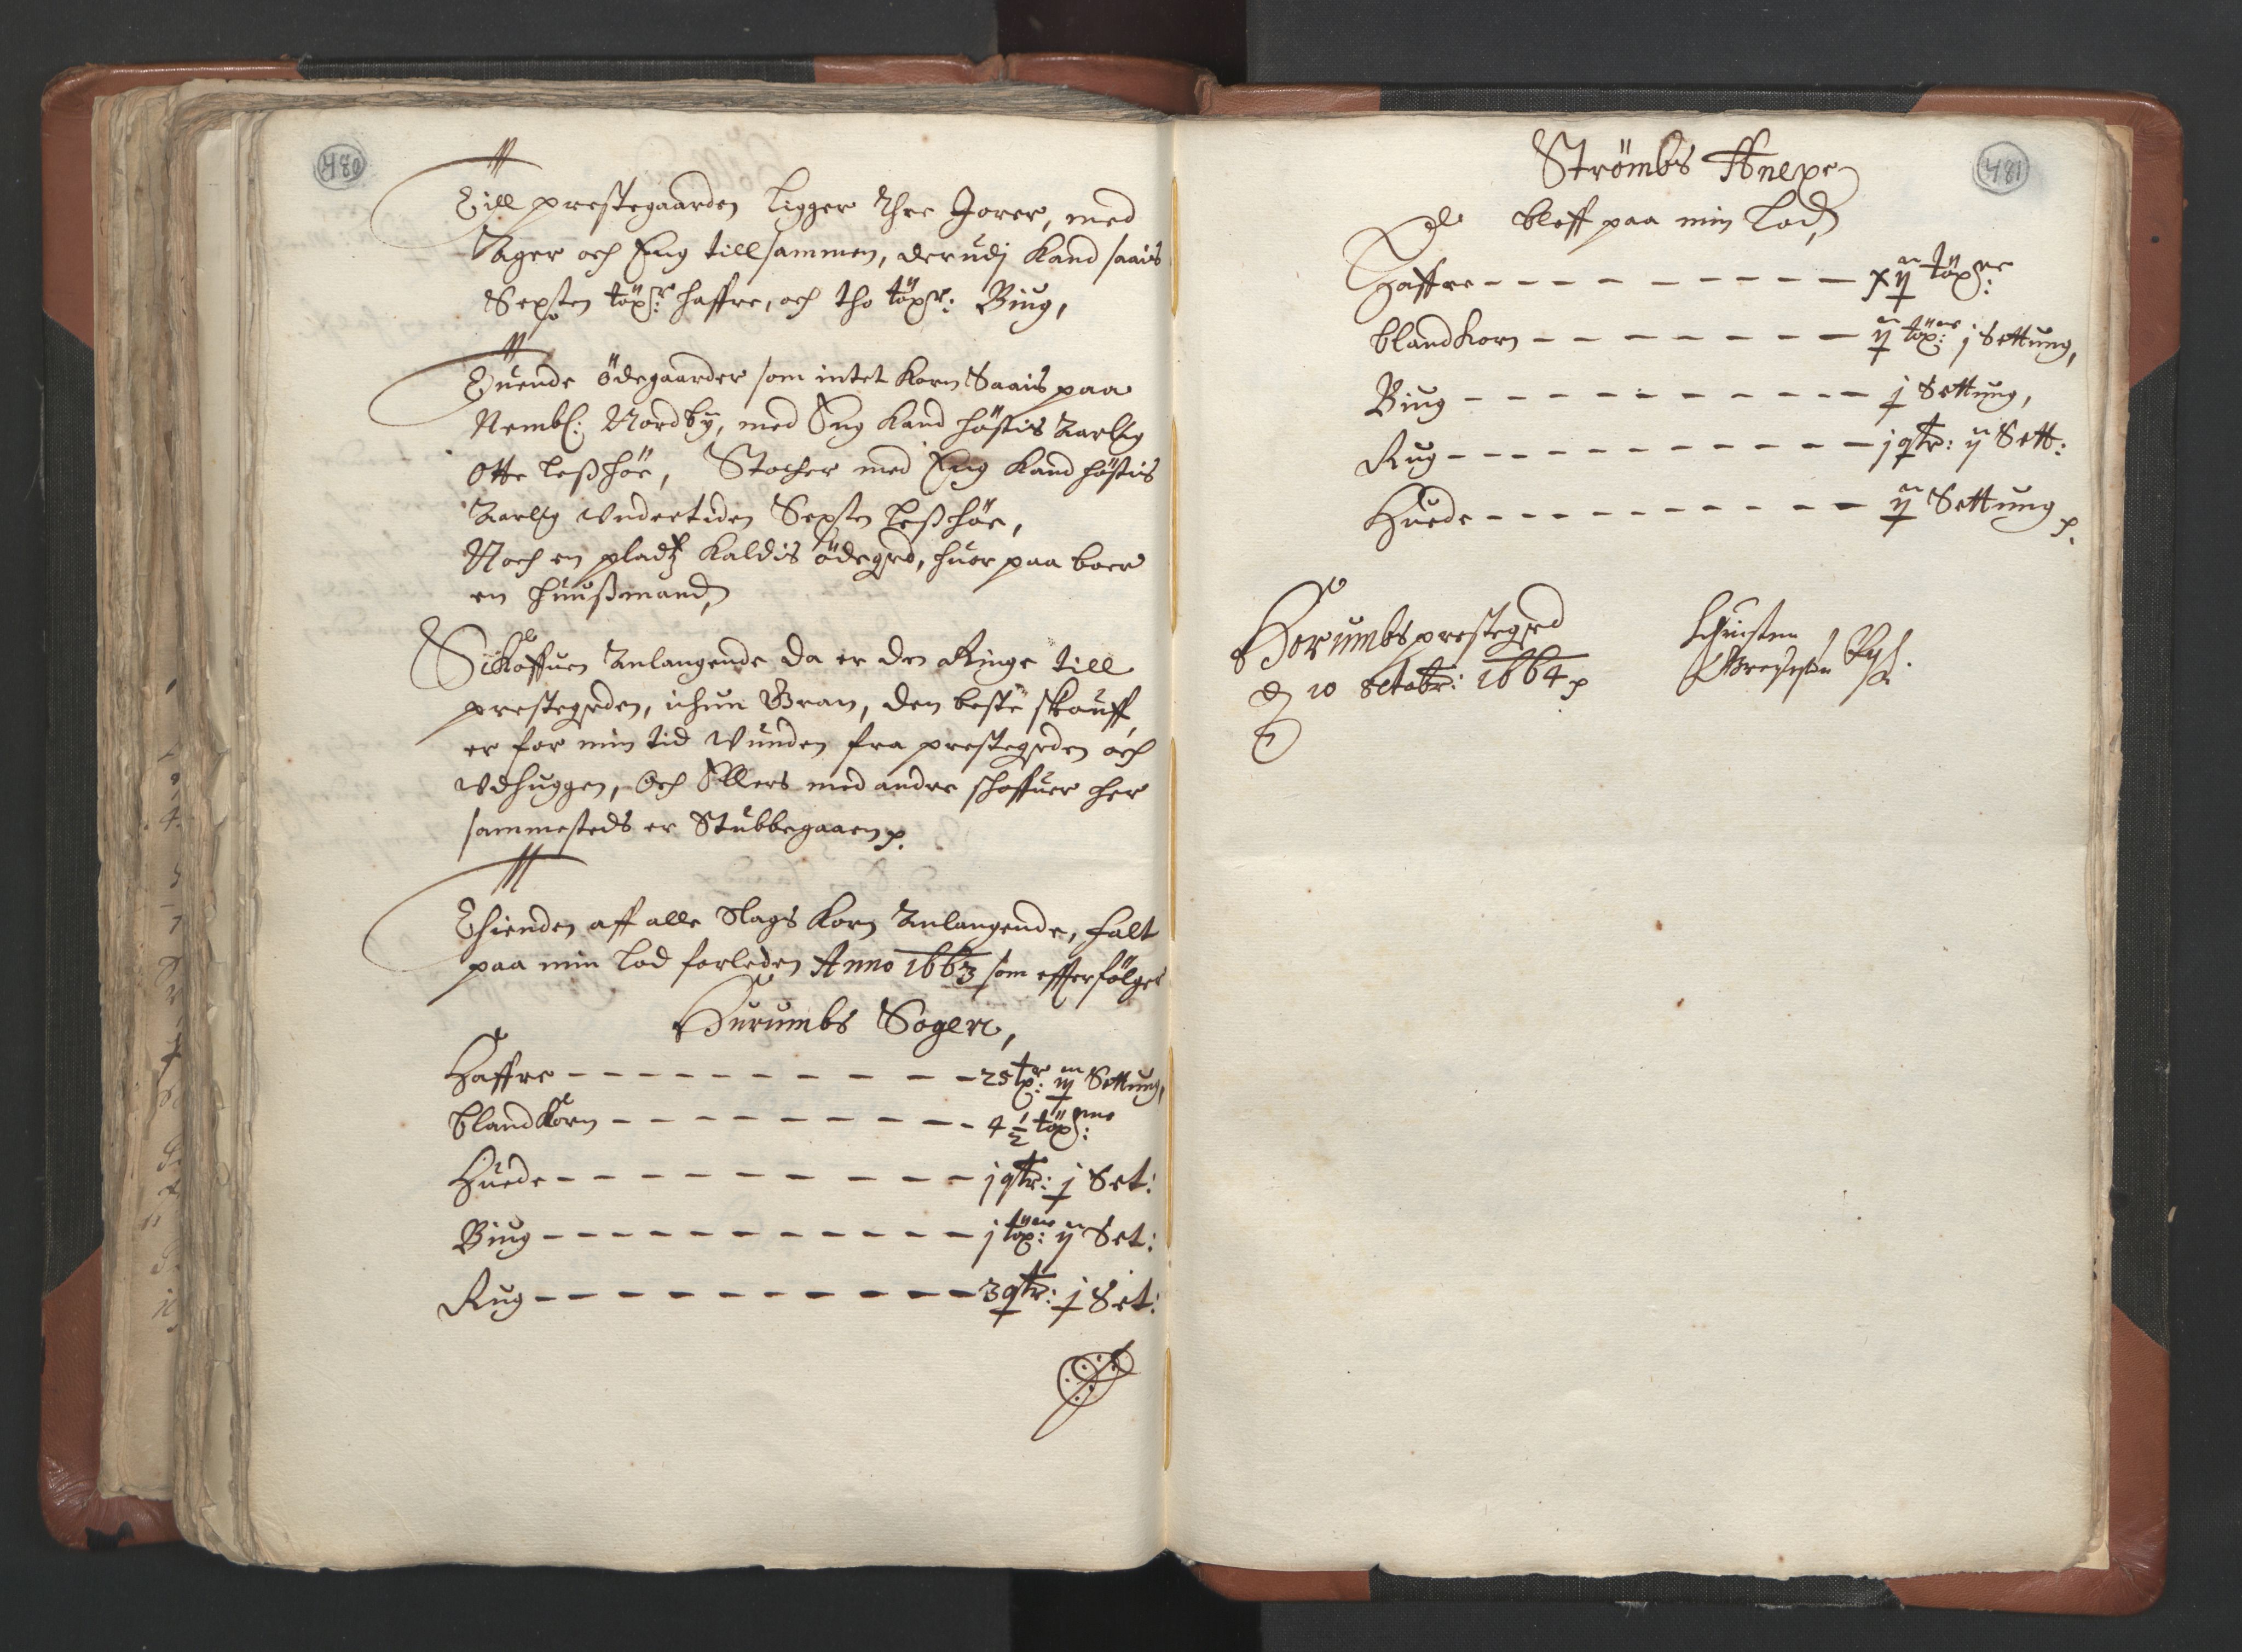 480
Till prestegaarden ligger thre Jorer, med
Ager och Eng tillsammen, derudj kand saais
Sexsten tøndr: haffre, och tho tøndr: Biug,
Tuende ödegaarder som intet Korn Saais paa
Nembl: Nordby, med Eng kand høstis Aarlig
Otte leß høe, Stocher med Eng kand høstis
Aarlig vndertiden Sexsten leß høe,
Noch en pladtz kaldis ödegrd, huor paa boer
en huußmand,
Skoffuen Anlangende da er den Ringe till
prestegrden, ichun Gran, den beste skouff
er for min tid vunden fra prestegrden och
vdhuggen, Och Ellers med andre schoffuer her
sammesteds er Stubbegaaen
Thienden aff alle Slags Korn Anlangende, falt
paa min lod forleden Anno 1663 som effterfølger
Hurumbs Sogen,
Haffre 25 tr: iij Settung,
blandkorn 4 1/2 tønne
Huede j qtr: j Set:
Biug j tønne: ij Set:
Rug 3 qtr: j Set:
481
Strömbs Anexe
bleff paa min lod,
Haffre xij tønner
blandkorn ij tønner j Settung,
Biug j Settung,
Rug j qtr: ij Sett:
Huede ij Settung
Horumbs prestegrd
10 Octobr: 1664
Christen